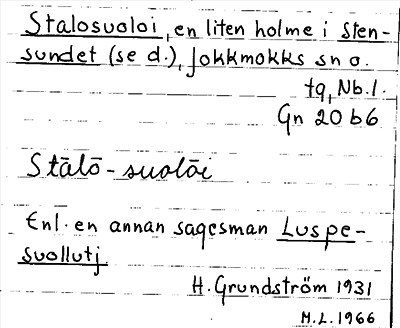 Stalosuoloi, en liten holme i Sten-
sundet (se d.), Jokkmokks sn o.
tg, Nb.l.
Gn 20 b6
Stālō-suolōi
Enl. en annan sagesman Luspe-
suollutj
H. Grundström 1931
M.L. 1966